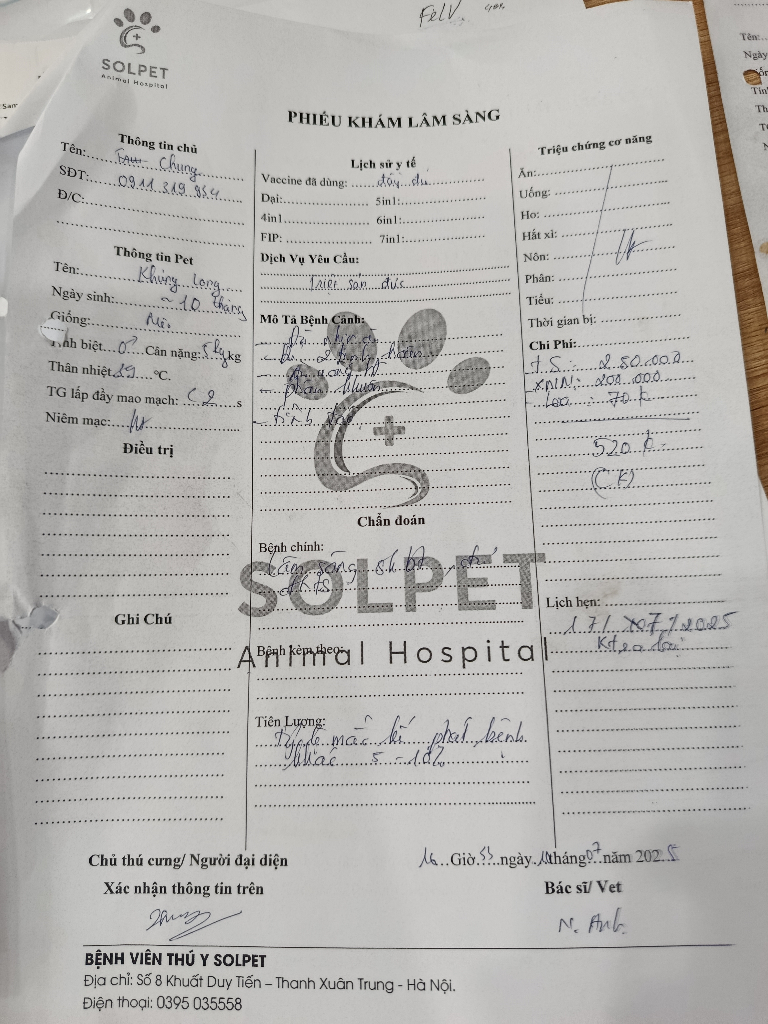 FelV
SOLPET
Animal Hospital
PHIẾU KHÁM LÂM SÀNG
Thông tin chủ
Tên: Chung
SĐT: 0911 319 854
Đ/C:
Thông tin Pet
Tên: Khủng long
Ngày sinh: ~ 10 tháng
Giống:
Tính biệt ♂ Cân nặng: 5 kg kg
Thân nhiệt °C.
TG lấp đầy mao mạch: < 2 s
Niêm mạc:
Điều trị
Ghi Chú
Lịch sử y tế
Vaccine đã dùng: đầy đủ
Dại: 5in1:
4in1 6in1:
FIP: 7in1:
Dịch Vụ Yêu Cầu:
Triệt sản đực
Mô Tả Bệnh Cảnh:
- 2 hoàn
- phân khuôn
Chẩn đoán
Bệnh chính:
Lâm sàng
SOLPET
Animal Hospital
Bệnh kèm theo:
Tiên Lượng:
mắc kì phát bệnh
khác 5 - 10%
Triệu chứng cơ năng
Ăn:
Uống:
Ho:
Hắt xì:
Nôn:
Phân:
Tiểu:
Thời gian bị:
Chi Phí:
T.S: 250.000
XNM: 200.000
loa: 70k
520k
(CK)
Lịch hẹn:
17/07/2025
Chủ thú cưng/ Người đại diện
Xác nhận thông tin trên
16 Giờ 53 ngày tháng 07 năm 2025
Bác sĩ/ Vet
N. Anh
BỆNH VIỆN THÚ Y SOLPET
Địa chỉ: Số 8 Khuất Duy Tiến – Thanh Xuân Trung - Hà Nội.
Điện thoại: 0395 035558